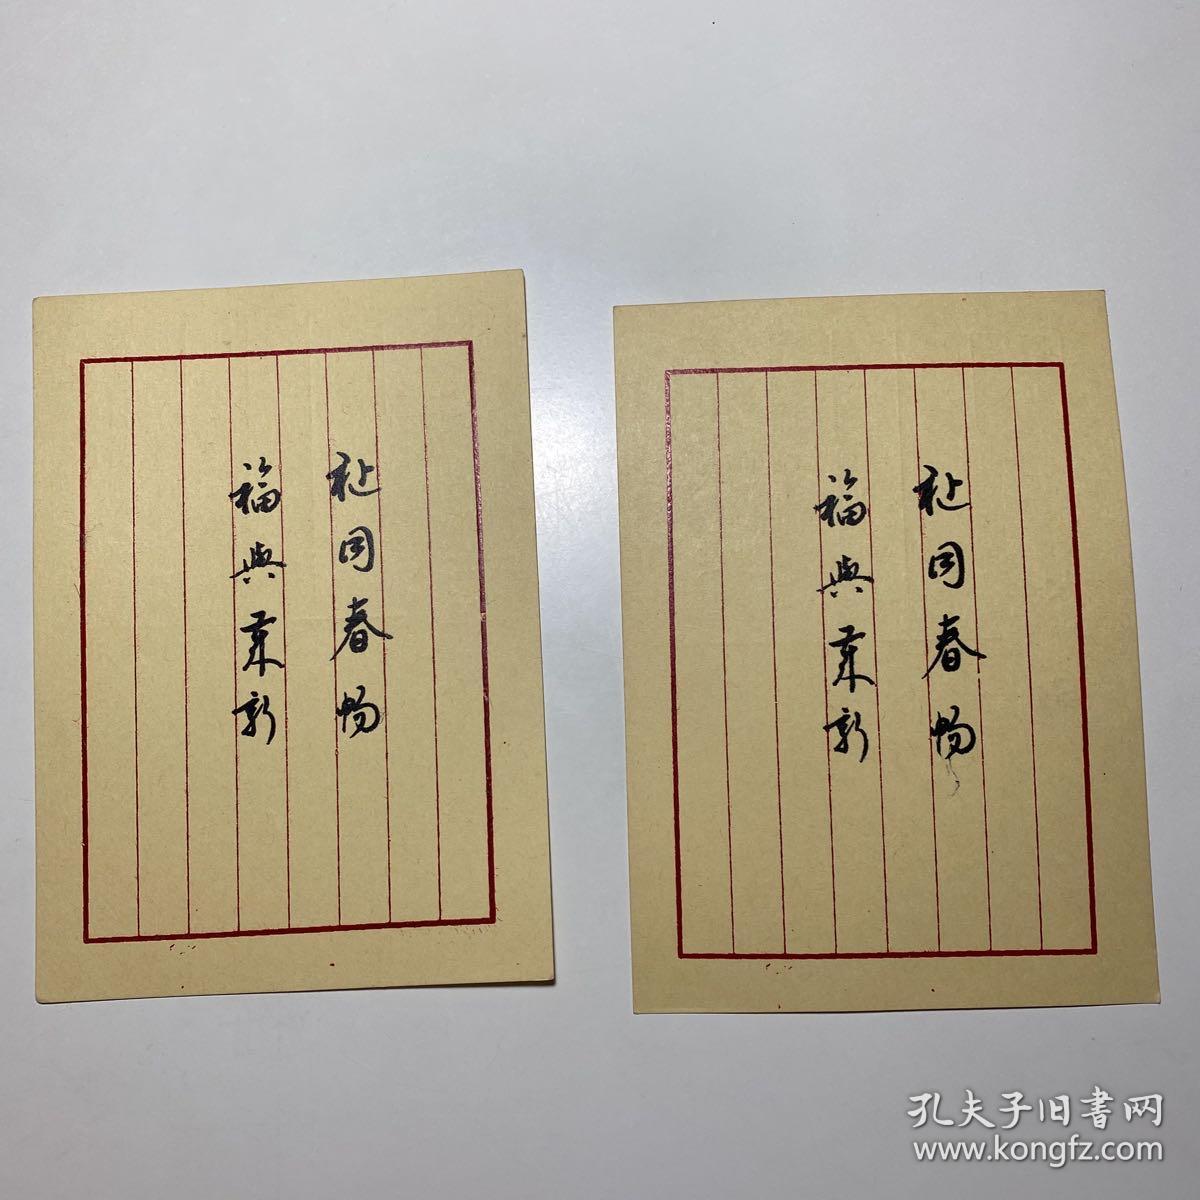 祉同春畅
福與業新
祉同春畅
福與業新
孔夫子旧書网
www.kongfz.com